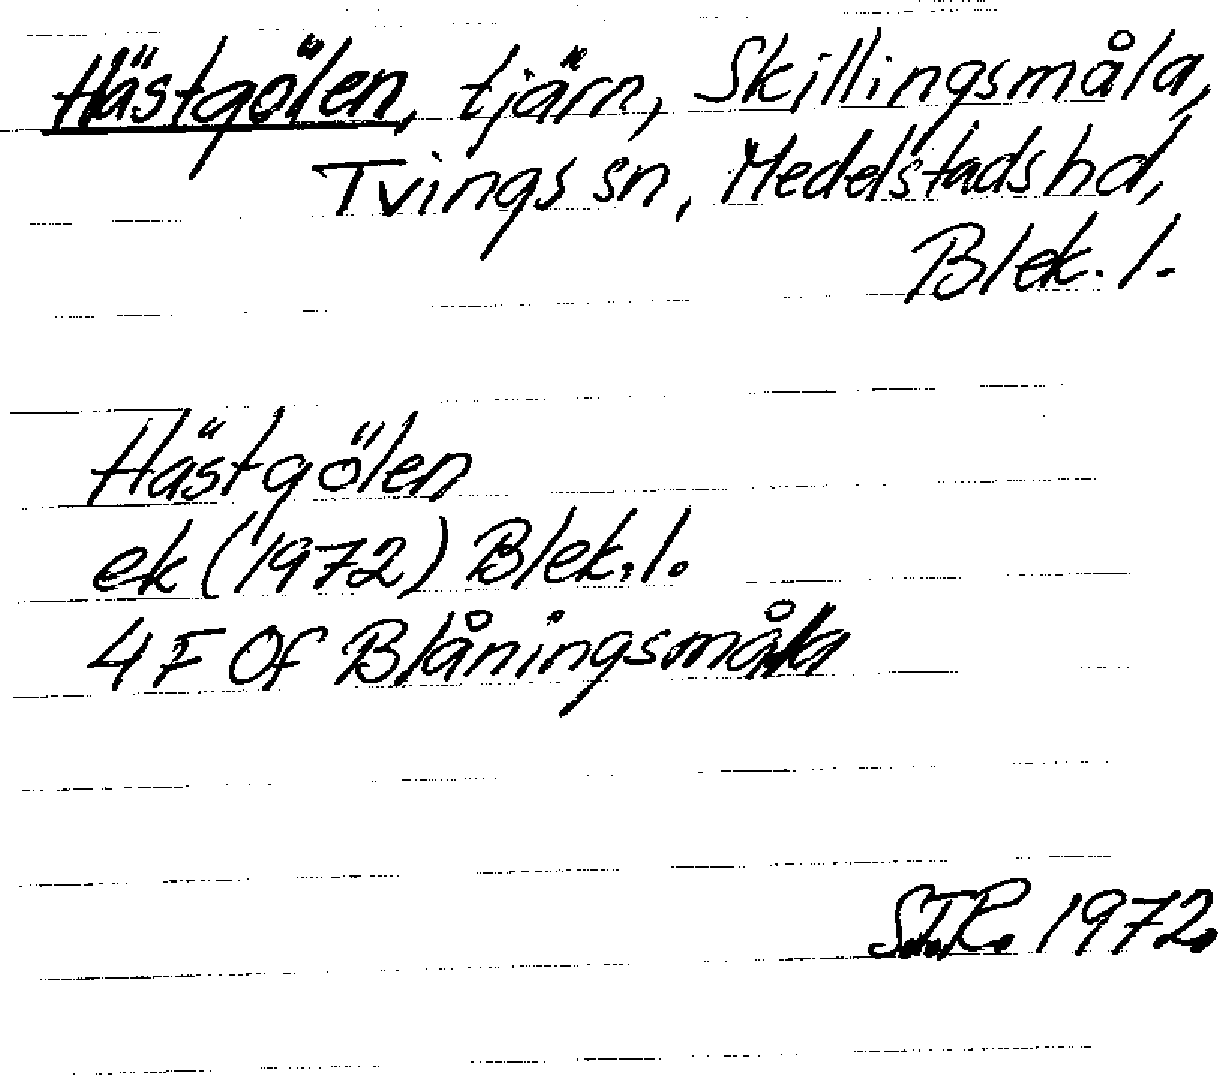 Hästgölen, tjärn, Skillingsmåla,
Tvings sn, Medelstads hd,
Blek. l.
Hästgölen
ek (1972) Blek. l.
4F Of Blåningsmåla
S.T.R. 1972.